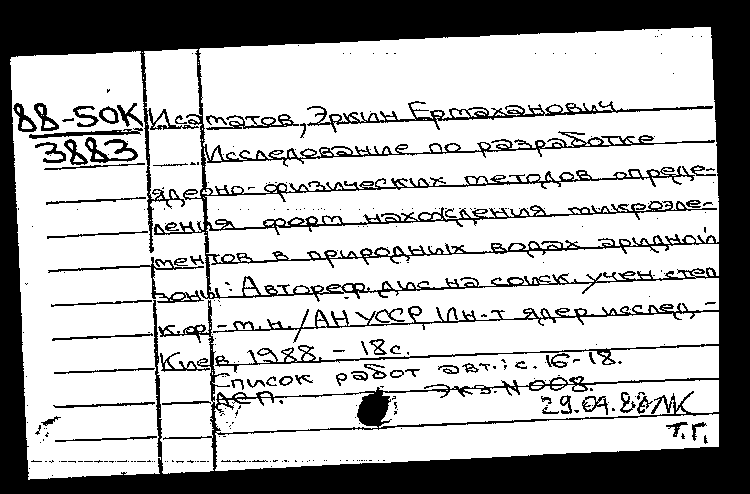 88-50К Исаматов, Эркин Ермаханович.
3883 Исследование по разработке
ядерно-физических методов опреде-
ления форм нахождения микроэле-
ментов в природных водах аридной
зоны: Автореф. дис на соиск. учен. степ
к.ф.-м.н. / АН УССР, Ин-т ядер. исслед. -
Киев, 1988. - 18 с.
Список работ авт.: с. 16-18.
Экз. N 008.
29.04.88
Т.Г.